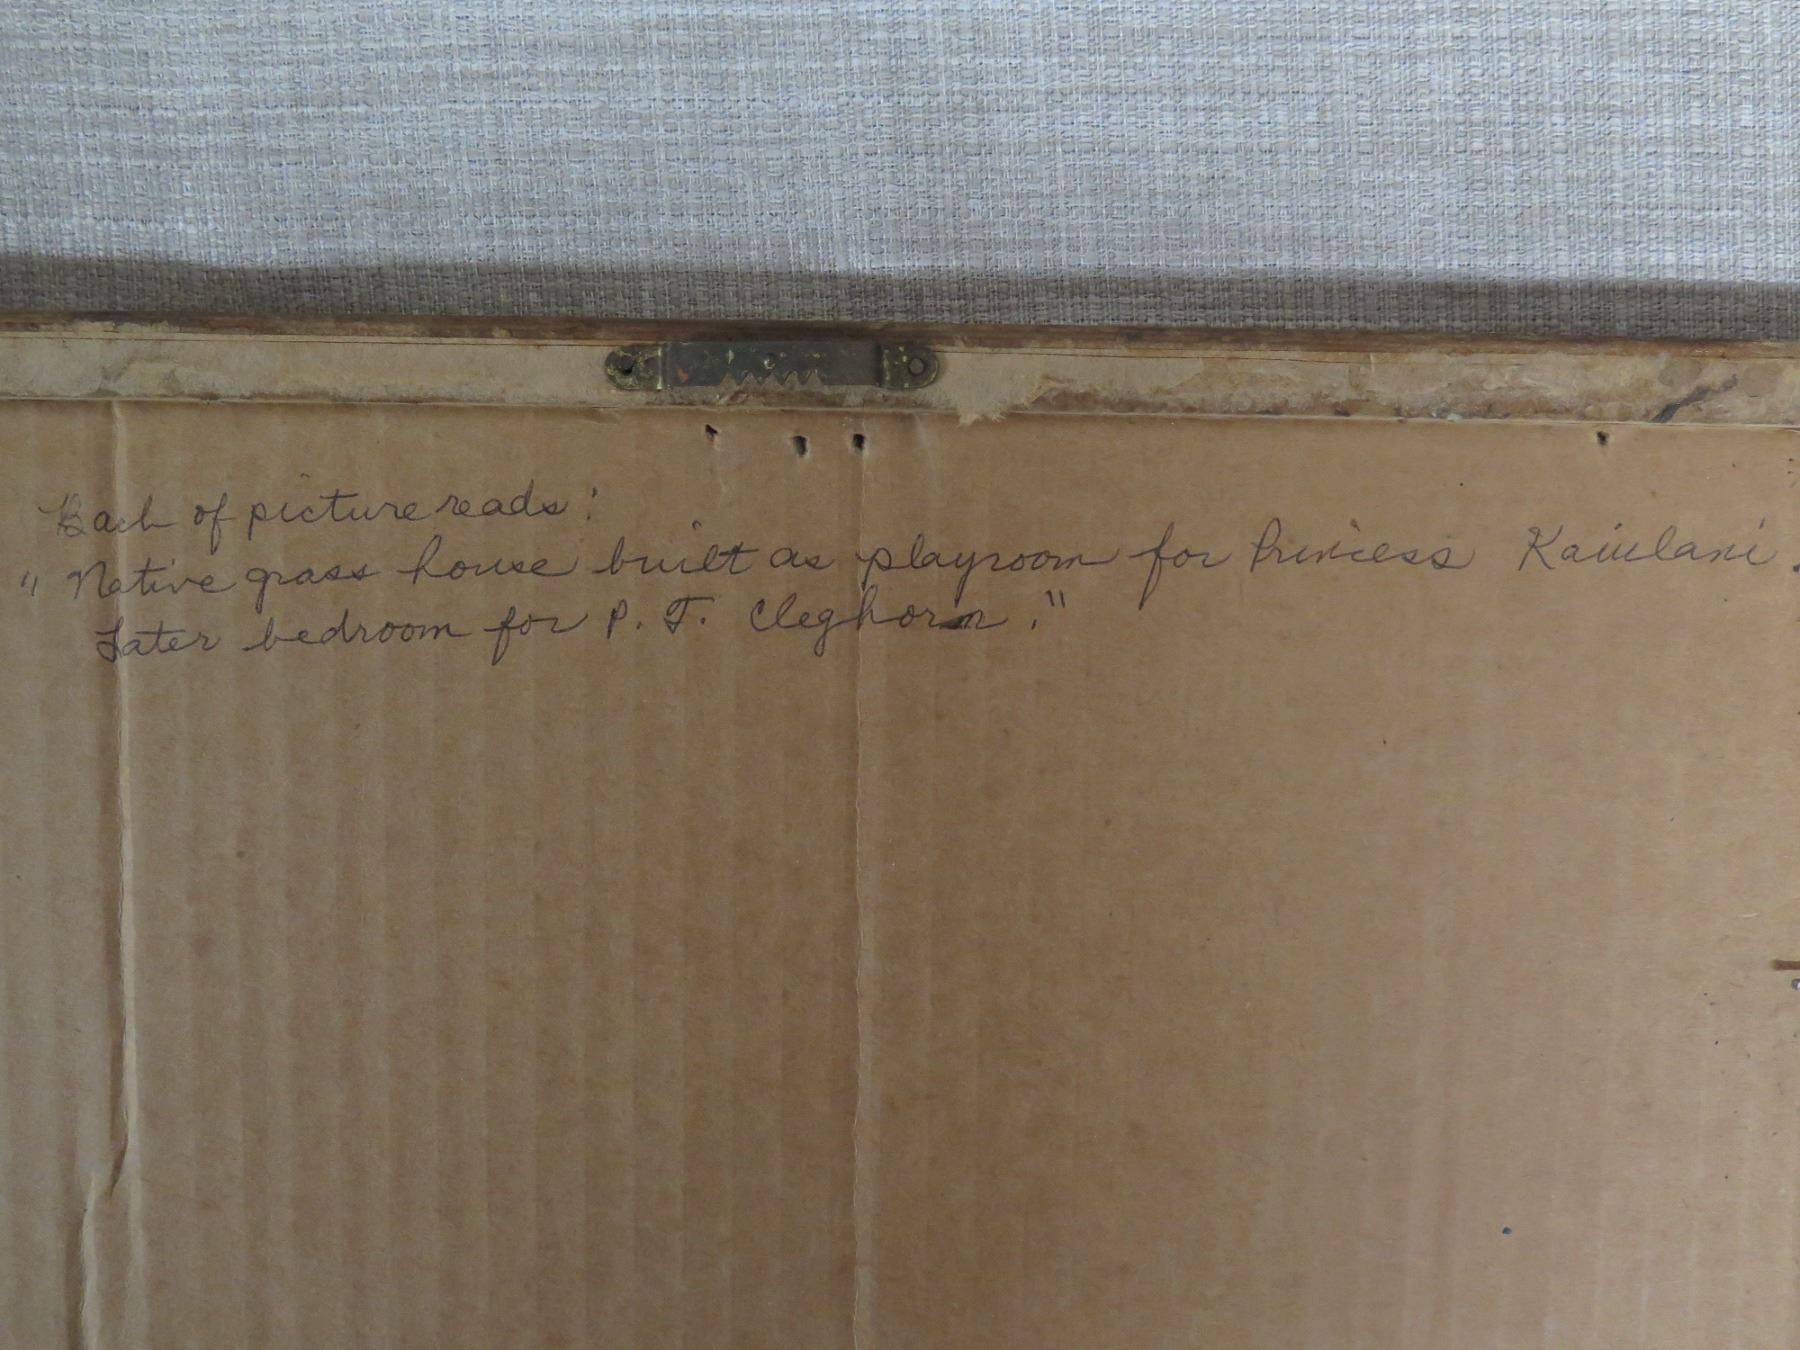 Back of picture reads:
"Native grass house built as playroom for Princess Kaiulani.
Later bedroom for P. T. Cleghorn."